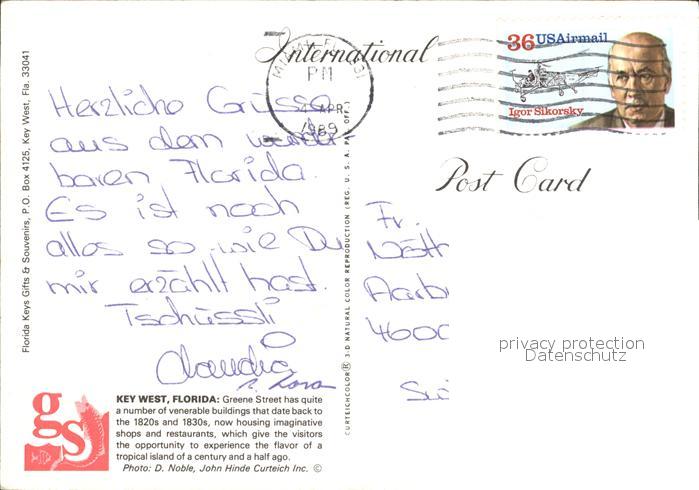 International
Post Card
36 USAirmail
Igor Sikorsky
PM
4 APR
1989
Herzliche Grüsse
aus dem wunder-
baren Florida.
Es ist noch
alles so wie Du
mir erzählt hast.
Tschüssli
Claudia
Fr.
Aarb
4600
privacy protection
Datenschutz
Florida Keys Gifts & Souvenirs, P.O. Box 4125, Key West, Fla. 33041
CURTEICHCOLOR® 3-D NATURAL COLOR REPRODUCTION (REG. U.S.A. PAT. OFF.)
gs
KEY WEST, FLORIDA: Greene Street has quite
a number of venerable buildings that date back to
the 1820s and 1830s, now housing imaginative
shops and restaurants, which give the visitors
the opportunity to experience the flavor of a
tropical island of a century and a half ago.
Photo: D. Noble, John Hinde Curteich Inc. ©